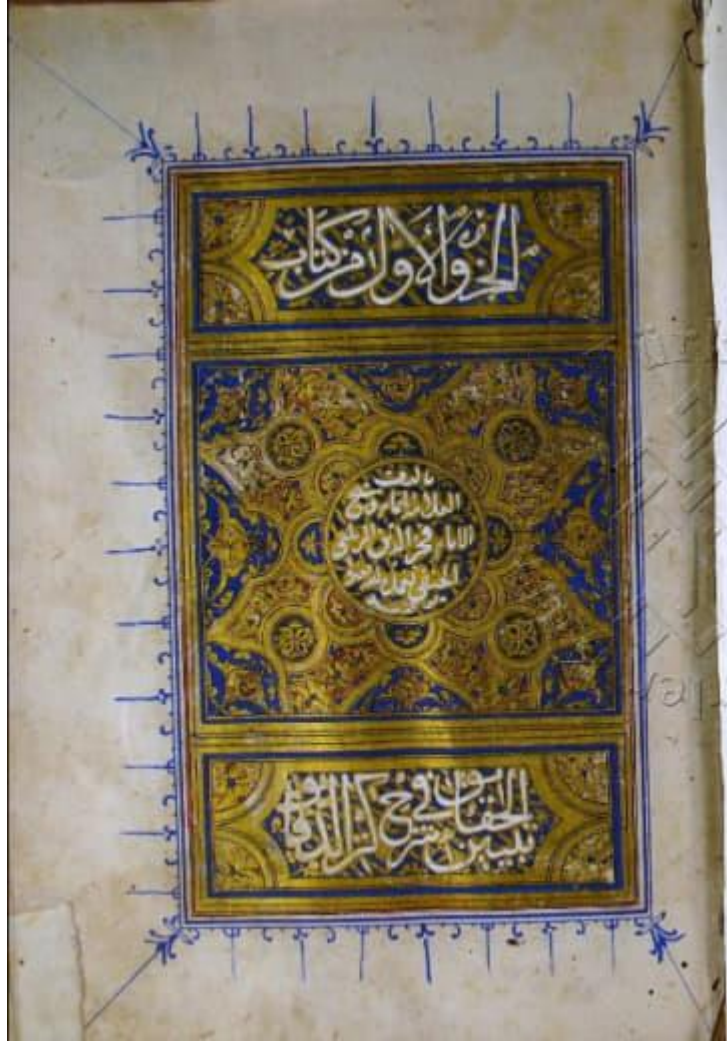 الجزو الأول من كتاب
تاليف
العلامة
الامام فخر الدين الزيلعي
الحنفي تغمده الله
تبيين الحقائق في شرح كنز الدقائق